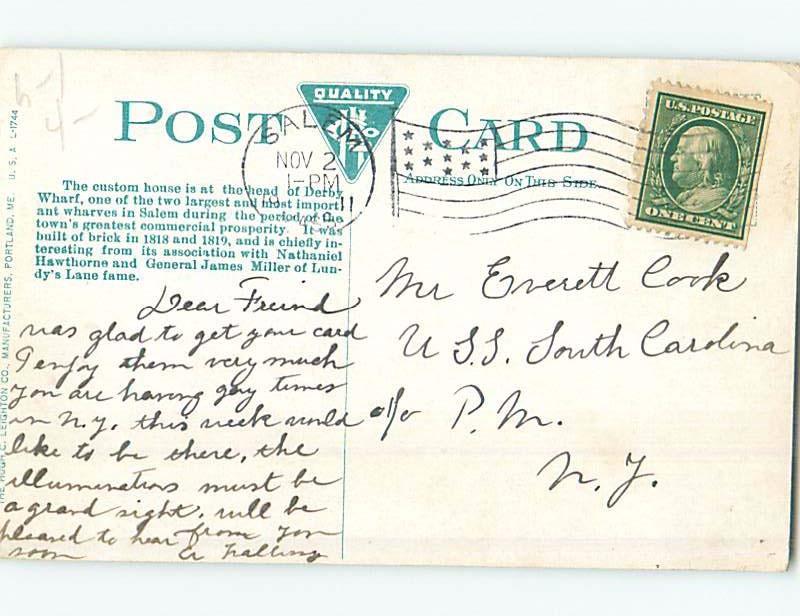 POST CARD
QUALITY
ADDRESS ONLY ON THIS SIDE
U.S. POSTAGE
ONE CENT
SALEM
NOV 2
1-PM
11
The custom house is at the head of Derby
Wharf, one of the two largest and most import
ant wharves in Salem during the period of the
town's greatest commercial prosperity. It was
built of brick in 1818 and 1819, and is chiefly in-
teresting from its association with Nathaniel
Hawthorne and General James Miller of Lun-
dy's Lane fame.
Dear Freind
was glad to get your card
I enjoy them very much
you are having gay times
in N.Y. this week would
like to be there, the
illuminations must be
a grand sight. will be
pleased to hear from you
soon
Mr Everett Cook
U.S.S. South Carolina
c/o P.M.
N.Y.
THE HUGH C. LEIGHTON CO., MANUFACTURERS, PORTLAND, ME. U. S. A. L-1744